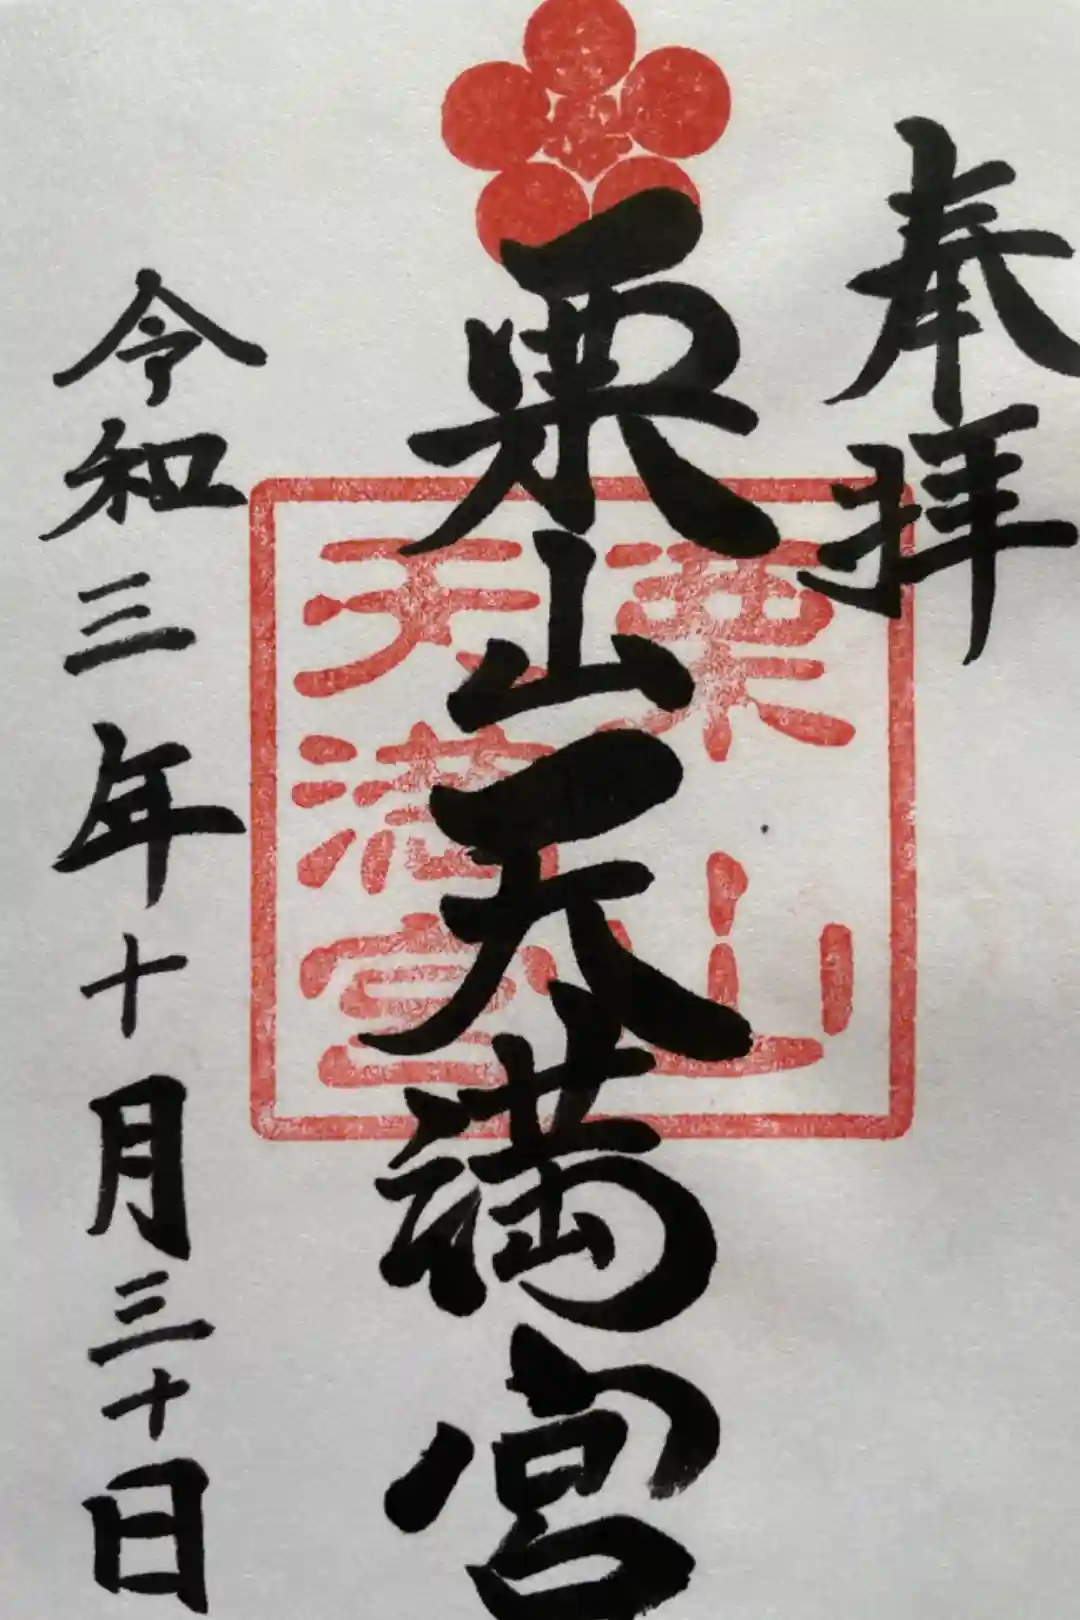 奉拝
栗山天満宮
令和三年十月三十日
栗山
天満宮